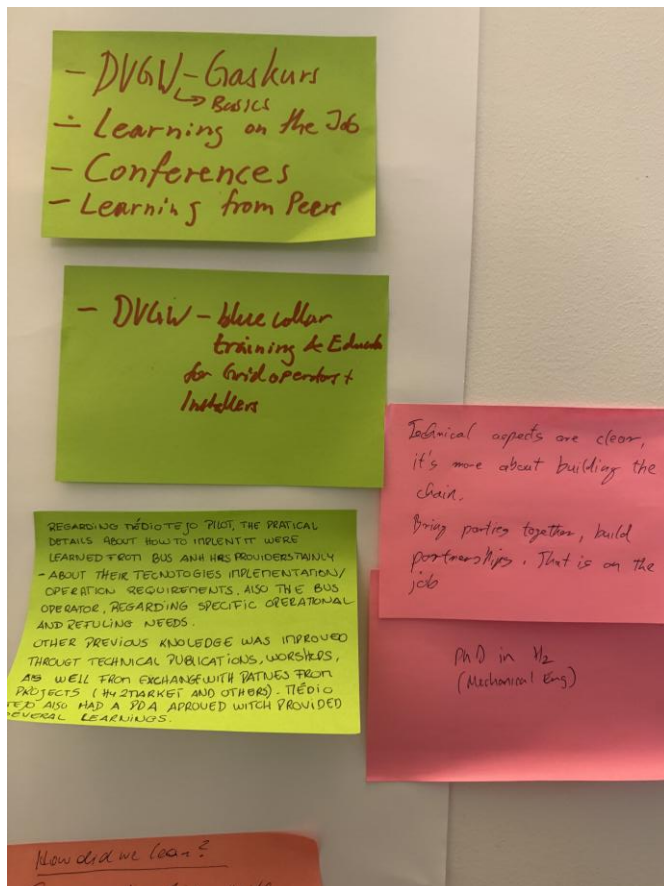 - DVGW-Gaskurs
↳ Basics
- Learning on the Job
- Conferences
- Learning from Peers
- DVGW - blue collar
training & Educat
for Grid operators +
Installers
Technical aspects are clear,
it's more about building the
chain.
Bring parties together, build
partnerships. That is on the
job
REGARDING MÉDIO TEJO PILOT, THE PRATICAL
DETAILS ABOUT HOW TO IMPLENT IT WERE
LEARNED FROM BUS ANH HRS PROVIDERS MAINLY
- ABOUT THEIR TECNOLOGIES IMPLEMENTATION/
OPERATION REQUIREMENTS, ALSO THE BUS
OPERATOR, REGARDING SPECIFIC OPERATIONAL
AND REFULING NEEDS.
OTHER PREVIOUS KNOLEDGE WAS IMPROVED
THROUGT TECHNICAL PUBLICATIONS, WORSHOPS,
AS WELL FROM EXCHANGE WITH PATNES FROM
PROJECTS (H2MARKET AND OTHERS). MÉDIO
TEJO ALSO HAD A PDA APROUED WITCH PROVIDED
SEVERAL LEARNINGS.
PhD in H2
(Mechanical Eng)
How did we learn?